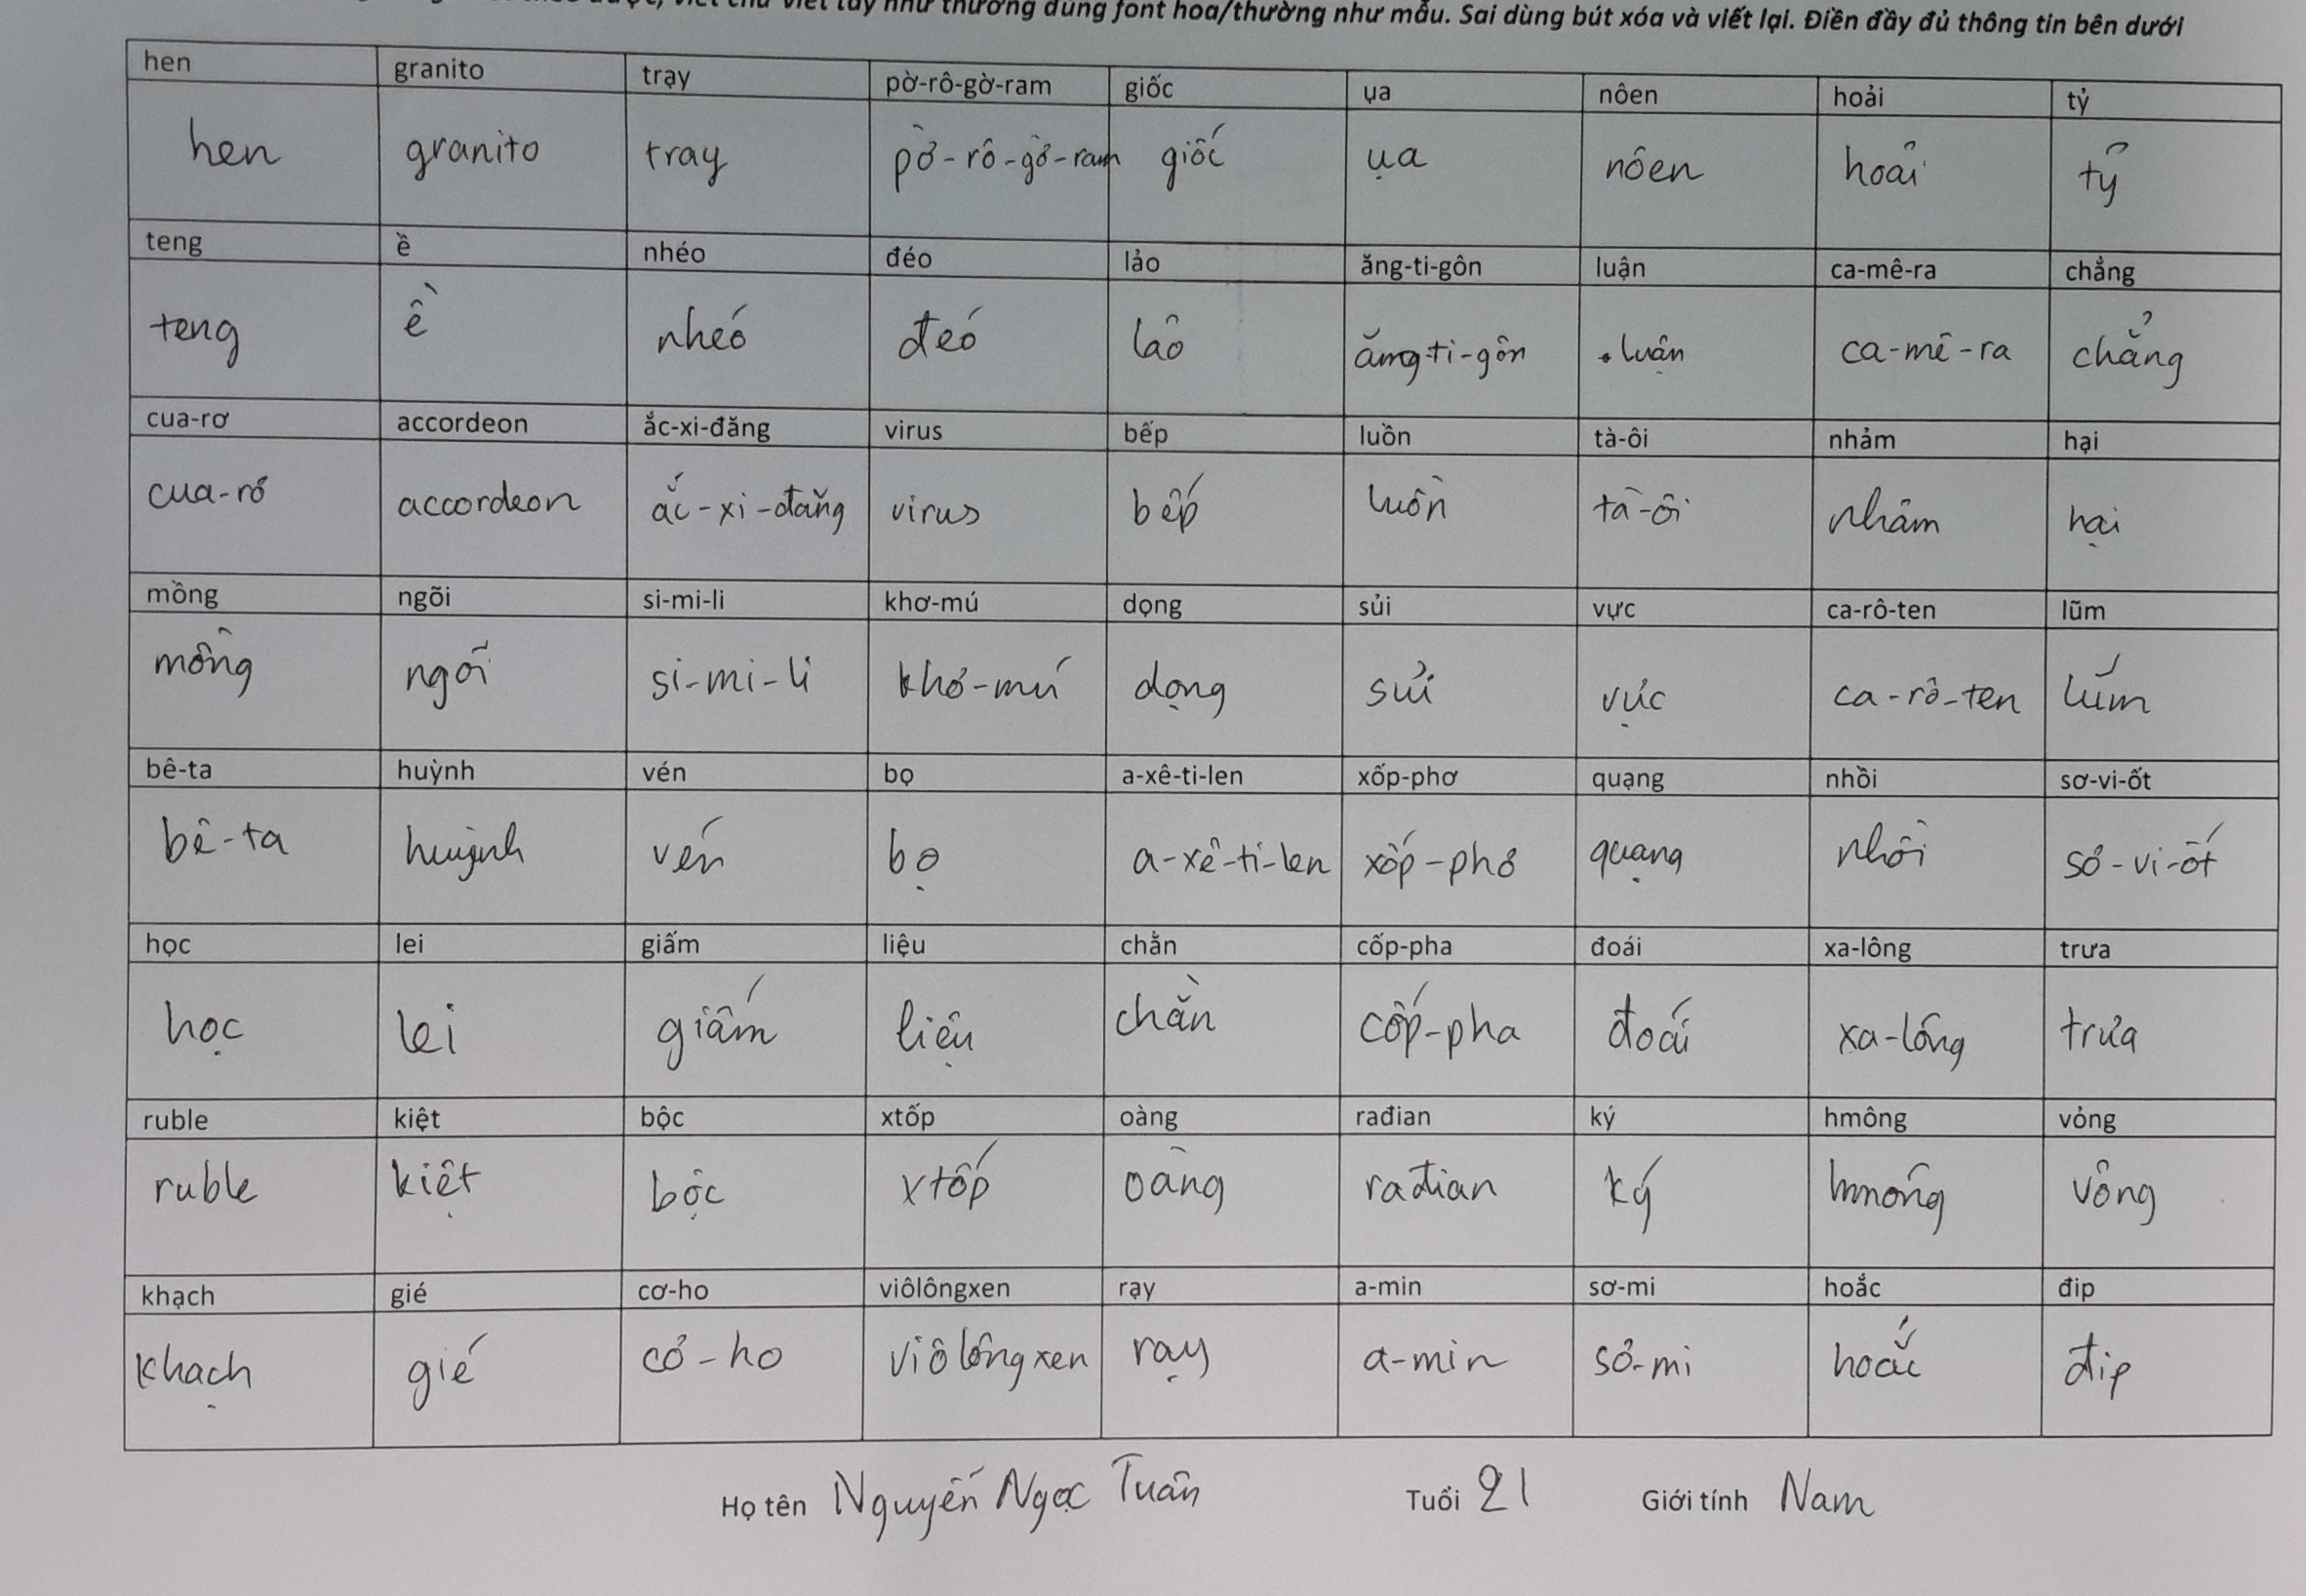 viết chữ viết tay như thường dùng font hoa/thường như mẫu. Sai dùng bút xóa và viết lại. Điền đầy đủ thông tin bên dưới
hen granito trạy pờ-rô-gờ-ram giốc ụa nôen hoải tỷ
hen granito tray pờ-rô-gờ-ram giốc ụa nôen hoải tỷ
teng ề nhéo đéo lảo ăng-ti-gôn luận ca-mê-ra chẳng
teng ề nhéo đéo lảo ăng-ti-gôn luận ca-mê-ra chẳng
cua-rơ accordeon ắc-xi-đăng virus bếp luồn tà-ôi nhảm hại
cua-rơ accordeon ắc-xi-đăng virus bếp luồn tà-ôi nhảm hại
mồng ngõi si-mi-li khơ-mú dọng sủi vực ca-rô-ten lũm
mồng ngõi si-mi-li khơ-mú dọng sủi vực ca-rô-ten lúm
bê-ta huỳnh vén bọ a-xê-ti-len xốp-phơ quạng nhồi sơ-vi-ốt
bê-ta huỳnh vén bọ a-xê-ti-len xốp-phơ quạng nhồi sơ-vi-ốt
học lei giấm liệu chằn cốp-pha đoái xa-lông trưa
học lei giấm liệu chằn cốp-pha đoái xa-lông trưa
ruble kiệt bộc xtốp oàng rađian ký hmông vỏng
ruble kiệt bộc xtốp oàng rađian ký hmông vỏng
khạch gié cơ-ho viôlôngxen rạy a-min sơ-mi hoắc đip
khạch gié cơ-ho viôlôngxen rạy a-min sơ-mi hoắc đip
Họ tên Nguyễn Ngọc Tuân Tuổi 21 Giới tính Nam